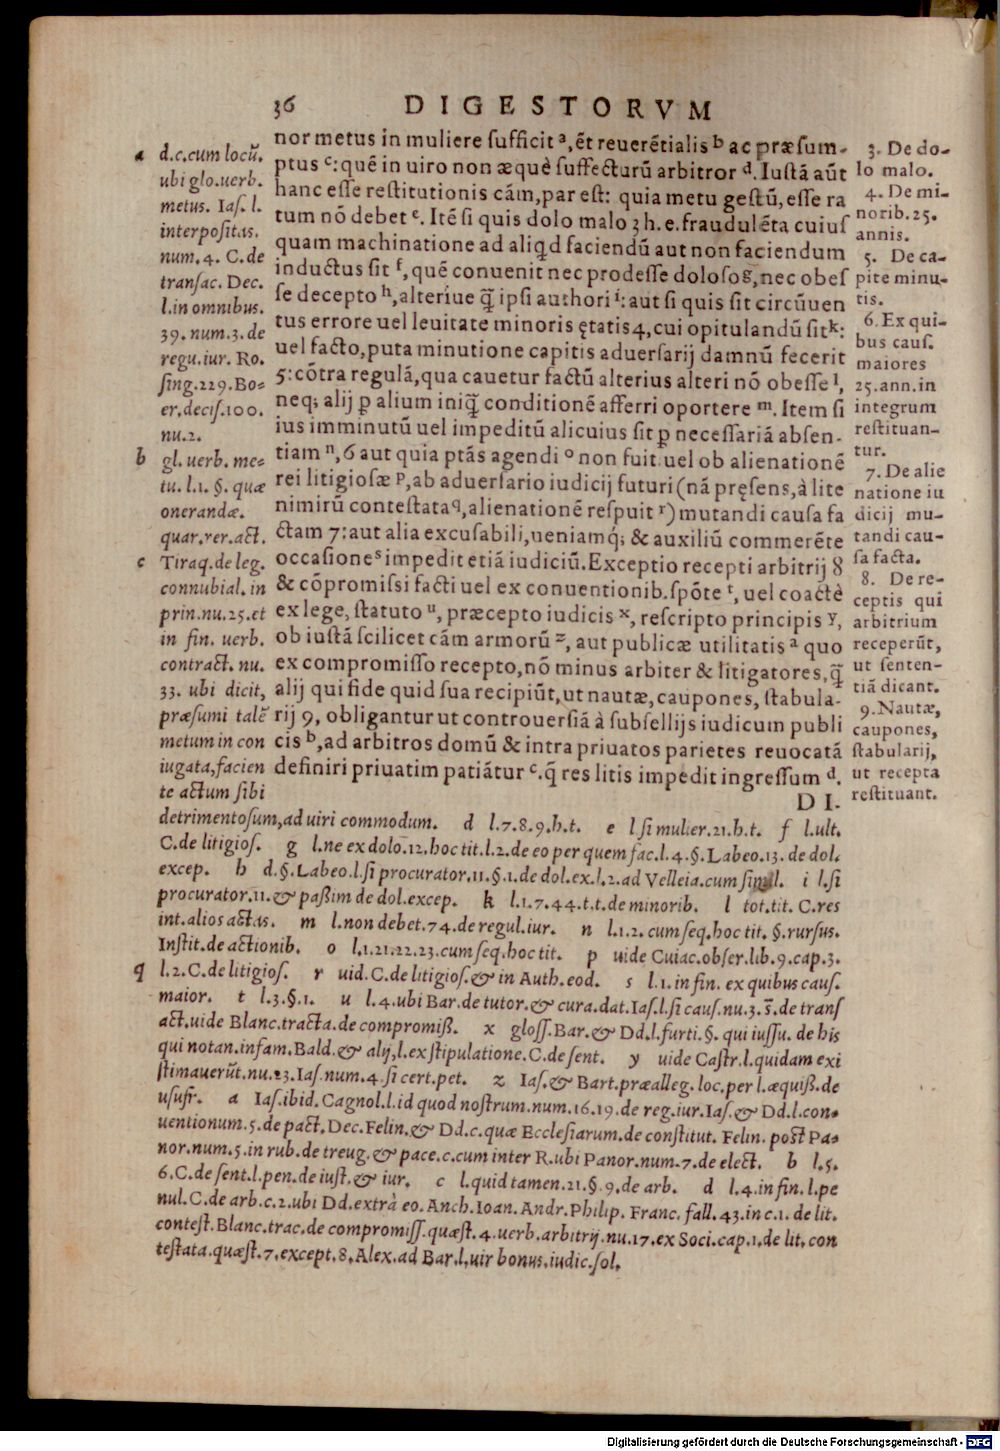 36 DIGESTORVM
nor metus in muliere sufficit ᵃ, ẽt reuerẽtialis ᵇ ac præsum-
ptus ᶜ: quẽ in uiro non æquè suffecturũ arbitror ᵈ. Iustã aũt
hanc esse restitutionis cãm, par est: quia metu gestũ, esse ra
tum nõ debet ᵉ. Itẽ si quis dolo malo 3 h.e. fraudulẽta cuius
quam machinatione ad aliqd faciendũ aut non faciendum
inductus sit ᶠ, quẽ conuenit nec prodesse doloso ᵍ, nec obes
se decepto ʰ, alteriúe q̃ ipsi authori ⁱ: aut si quis sit circũuen
tus errore uel leuitate minoris ętatis 4, cui opitulandũ sit ᵏ:
uel facto, puta minutione capitis aduersarij damnũ fecerit
5: cõtra regulã, qua cauetur factũ alterius alteri nõ obesse ˡ,
neq; alij ꝑ alium iniq̃ conditionẽ afferri oportere ᵐ. Item si
ius imminutũ uel impeditũ alicuius sit ꝑ necessariã absen-
tiam ⁿ, 6 aut quia ptãs agendi ᵒ non fuit uel ob alienationẽ
rei litigiosæ ᵖ, ab aduersario iudicij futuri (nã pręsens, à lite
nimirũ contestata ᑫ, alienationẽ respuit ʳ) mutandi causa fa
ctam 7: aut alia excusabili, ueniamq́; & auxiliũ commerẽte
occasione ˢ impedit etiã iudiciũ. Exceptio recepti arbitrij 8
& cõpromissi facti uel ex conuentionib. spõte ᵗ, uel coactè
ex lege, statuto ᵘ, præcepto iudicis ˣ, rescripto principis ʸ,
ob iustã scilicet cãm armorũ ᶻ, aut publicæ utilitatis ᵃ quo
ex compromisso recepto, nõ minus arbiter & litigatores, q̃
alij qui fide quid sua recipiũt, ut nautæ, caupones, stabula-
rij 9, obligantur ut controuersiã à subsellijs iudicum publi
cis ᵇ, ad arbitros domũ & intra priuatos parietes reuocatã
definiri priuatim patiãtur ᶜ. q̃ res litis impedit ingressum ᵈ.
DI-
a d.c.cum locũ.
ubi glo.uerb.
metus. Ias. l.
interpositas.
num.4. C.de
transac. Dec.
l.in omnibus.
39. num.3.de
regu.iur. Ro.
sing.229.Bo=
er.decis.100.
nu.2.
b gl. uerb. me=
tu. l.1. §. quæ
onerandæ.
quar.rer.act.
c Tiraq.de leg.
connubial. in
prin.nu.25.et
in fin. uerb.
contract. nu.
33. ubi dicit,
præsumi talẽ
metum in con
iugata, facien
te actum sibi
3. De do-
lo malo.
4. De mi-
norib.25.
annis.
5. De ca-
pite minu-
tis.
6. Ex qui-
bus caus.
maiores
25.ann.in
integrum
restituan-
tur.
7. De alie
natione iu
dicij mu-
tandi cau-
sa facta.
8. De re-
ceptis qui
arbitrium
receperũt,
ut senten-
tiã dicant.
9. Nautæ,
caupones,
stabularij,
ut recepta
restituant.
detrimentosum, ad uiri commodum. d l.7.8.9.h.t. e l.si mulier.21.h.t. f l.ult.
C.de litigios. g l.ne ex dolo.12.hoc tit.l.2.de eo per quem fac.l.4.§.Labeo.13. de dol.
excep. h d.§.Labeo.l.si procurator.11.§.1.de dol.ex.l.2.ad Velleia.cum simil. i l.si
procurator.11.& paßim de dol.excep. k l.1.7.44.t.t.de minorib. l tot.tit. C.res
int.alios actas. m l.non debet.74.de regul.iur. n l.1.2.cum seq.hoc tit. §.rursus.
Instit.de actionib. o l.1.21.22.23.cum seq.hoc tit. p uide Cuiac.obser.lib.9.cap.3.
q l.2.C.de litigios. r uid.C.de litigios.& in Auth.eod. s l.1.in fin. ex quibus caus.
maior. t l.3.§.1. u l.4.ubi Bar.de tutor.& cura.dat.Ias.l.si caus.nu.3.s̃.de trans
act.uide Blanc.tracta.de compromiß. x gloss.Bar.& Dd.l.furti.§. qui iussu. de his
qui notan.infam.Bald.& alij,l.ex stipulatione.C.de sent. y uide Castr.l.quidam exi
stimauerũt.nu.23.Ias.num.4.si cert.pet. z Ias.& Bart.præalleg.loc.per l.æquiß.de
usufr. a Ias.ibid.Cagnol.l.id quod nostrum.num.16.19.de reg.iur.Ias.& Dd.l.con=
uentionum.5.de pact.Dec.Felin.& Dd.c.quæ Ecclesiarum.de constitut. Felin. post Pa=
nor.num.5.in rub.de treug.& pace.c.cum inter R.ubi Panor.num.7.de elect. b l.5.
6.C.de sent.l.pen.de iust.& iur. c l.quid tamen.21.§.9.de arb. d l.4.in fin.l.pe
nul.C.de arb.c.2.ubi Dd.extrà eo.Anch.Ioan. Andr.Philip. Franc. fall.43.in c.1. de lit.
contest.Blanc.trac.de compromiss.quæst.4.uerb.arbitrij.nu.17.ex Soci.cap.1.de lit. con
testata.quæst.7.except.8.Alex.ad Bar.l.uir bonus.iudic.sol.
Digitalisierung gefördert durch die Deutsche Forschungsgemeinschaft - DFG